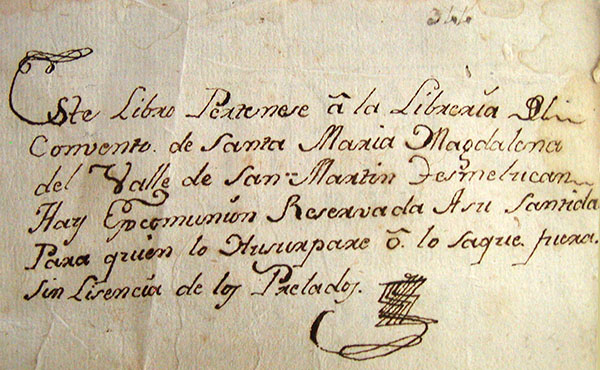 344
Este Libro Pertenese â la Librería Del
Convento. de Santa Maria Magdalena
del Valle de San Martin Tesmelucan
Hay Expcomunión Reservada Asu Santida
Para quien lo Husurpare ô. lo saque fuera.
Sin Lisencia de los Prelados.